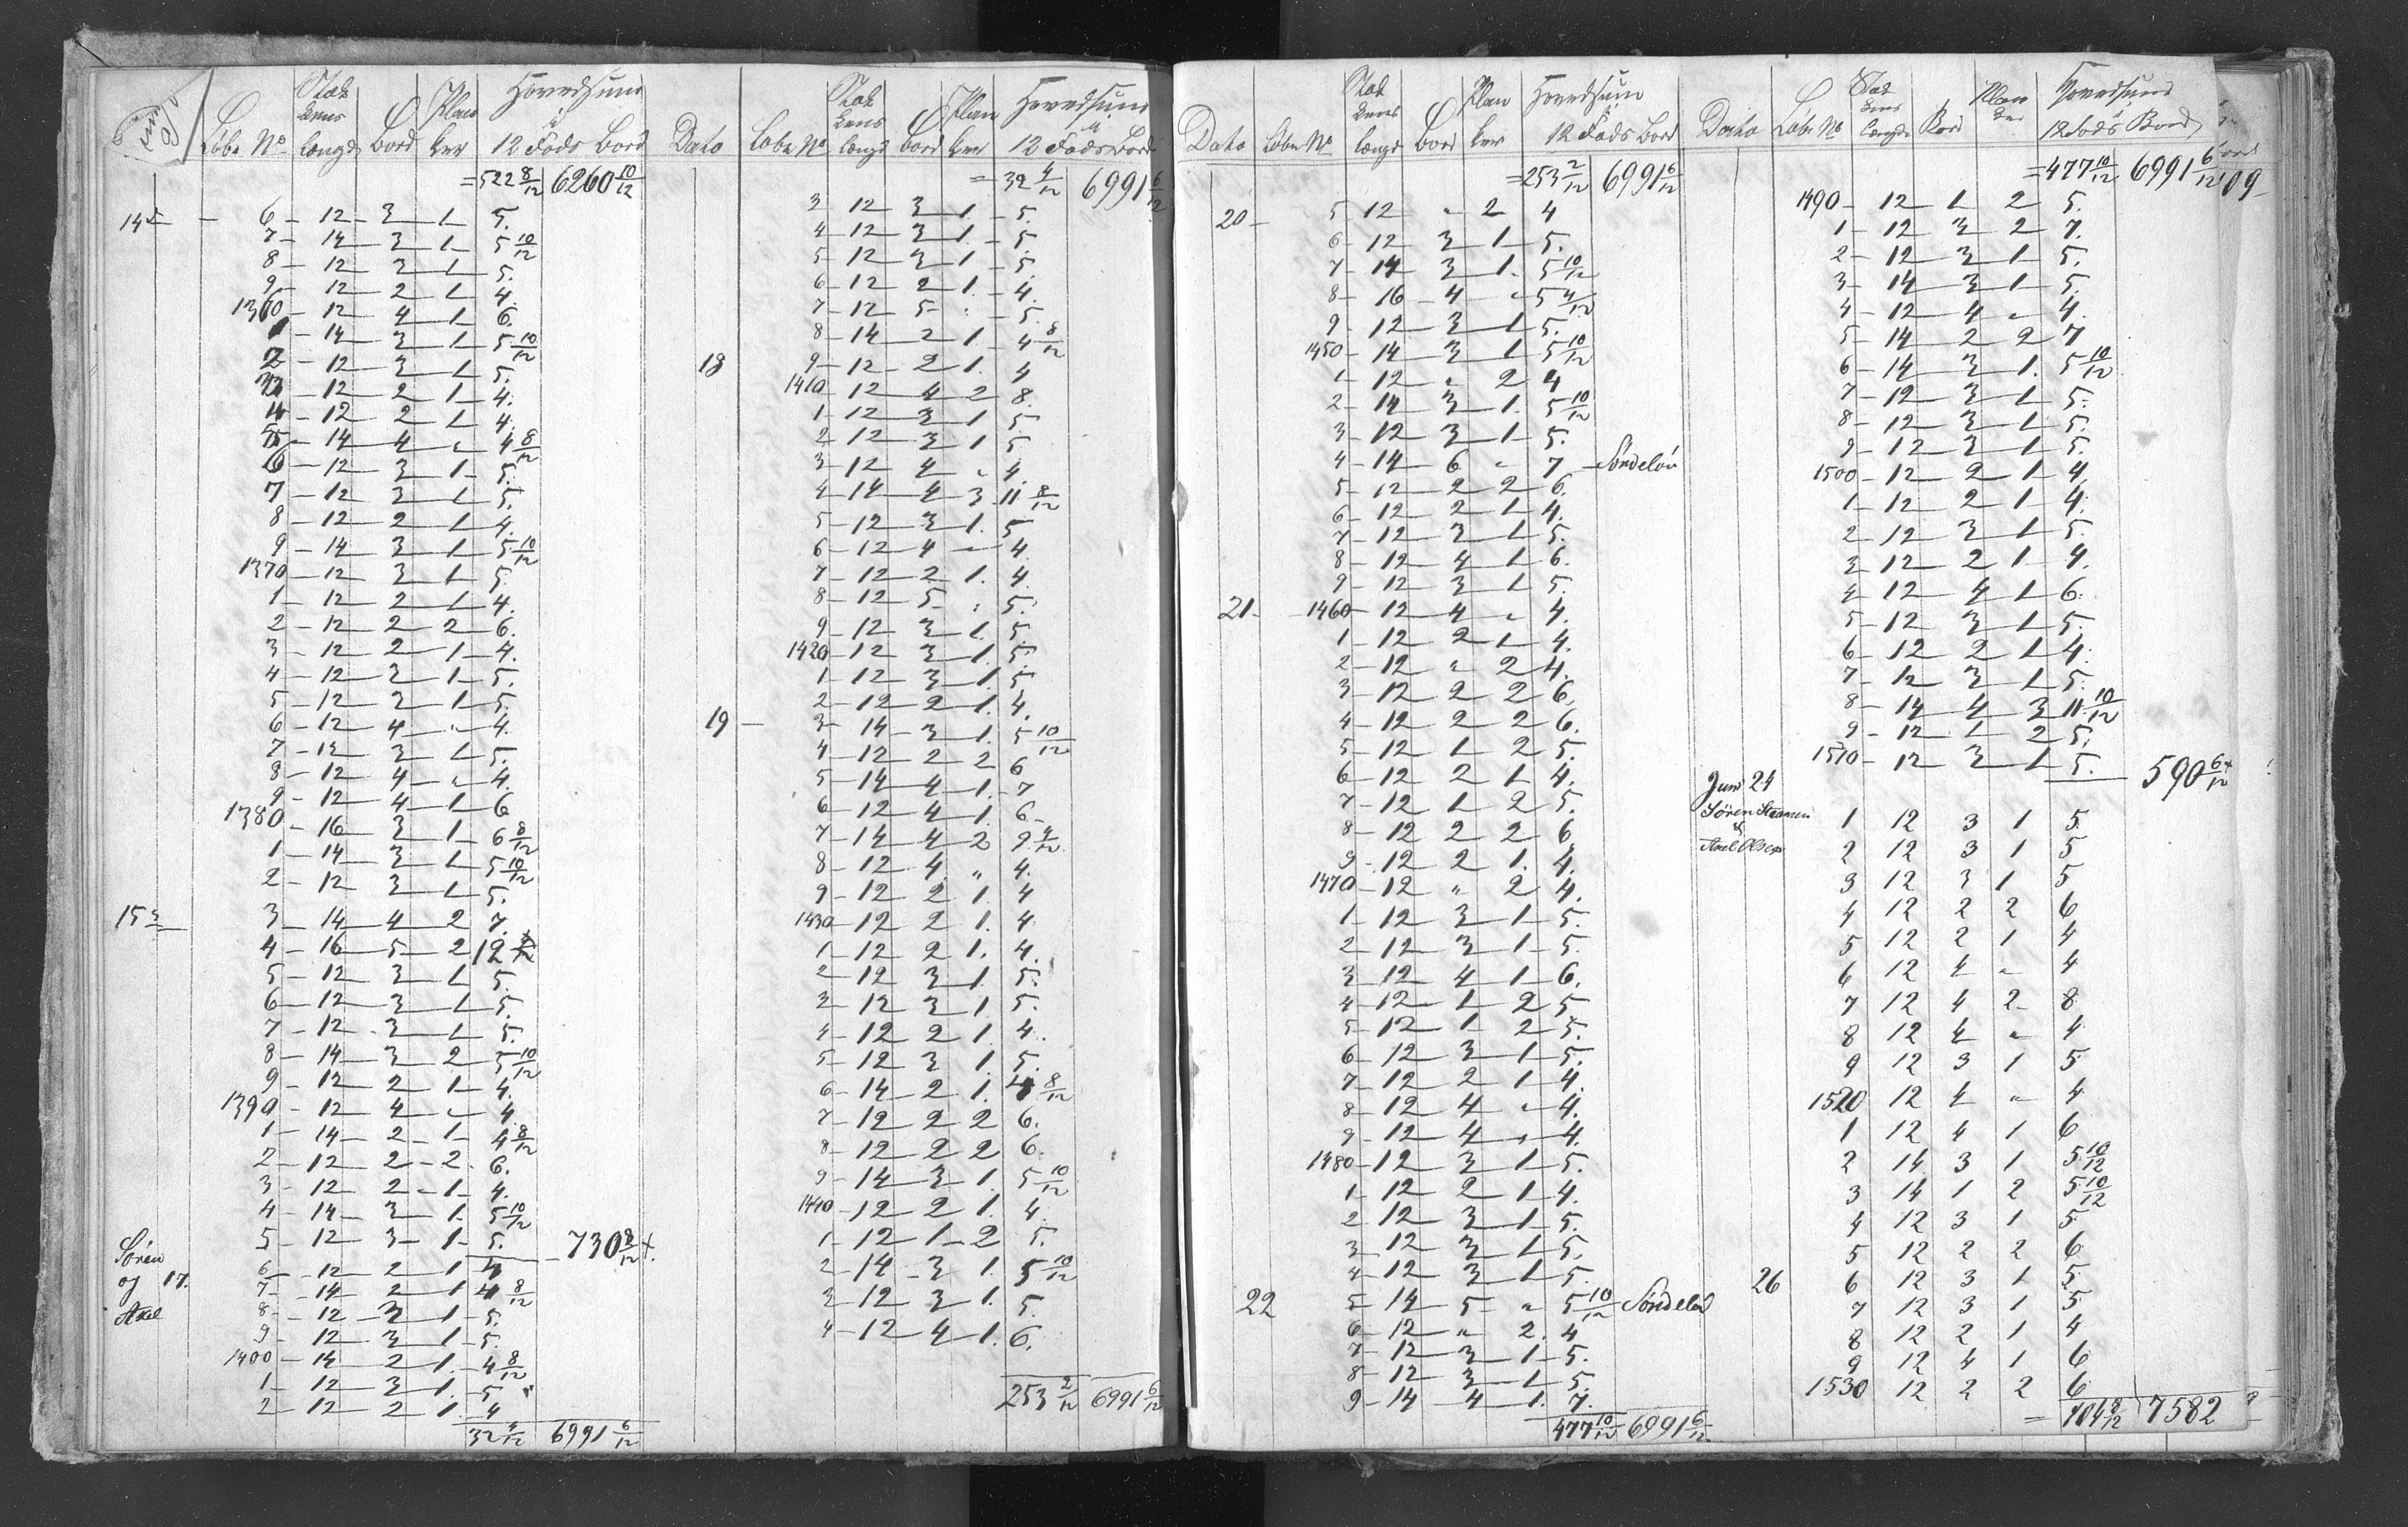 Juni 18
Løbe No Stokkens længde Bord Planker Hovedsum i 12 Fods Bord
=522 8/12 6260 10/12
14de – 6 – 12 – 3 – 1 5.
7 – 14 – 3 – 1 – 5 10/12
8 – 12 – 3 – 1 – 5.
9 – 12 – 2 – 1 4.
1360 – 12 – 4 – 1 – 6.
1 – 14 – 3 – 1 – 5 10/12
2 – 12 – 3 – 1 5.
3 – 12 – 2 – 1 – 4.
4 – 12 2 – 1 4.
5 – 14 – 4 – " 4 8/12
6 – 12 – 3 – 1 – 5.
7 – 12 – 3 – 1 5.
8 – 12 – 2 – 1 4.
9 – 14 – 3 – 1 – 5 10/12
1370 – 12 – 3 – 1 5.
1 – 12 – 2 – 1 4.
2 – 12 – 2 – 2 – 6.
3 – 12 – 2 – 1 – 4.
4 – 12 – 3 – 1 – 5.
5 – 12 – 3 – 1 – 5.
6 – 12 – 4 – " – 4.
7 – 12 – 3 – 1 5.
8 – 12 – 4 – " – 4.
9 – 12 – 4 – 1 6
1380 – 16 – 3 – 1 – 6 8/12
1 – 14 – 3 – 1 5 10/12
2 – 12 – 3 – 1 5.
15de 3 – 14 – 4 – 2 7.
4 – 16 – 5 – 2 12
5 – 12 – 3 – 1 5.
6 – 12 – 3 – 1 5.
7 – 12 – 3 – 1 5.
8 – 14 – 3 – 2 – 5 10/12
9 – 12 – 2 – 1 – 4.
1390 – 12 – 4 – " – 4.
1 – 14 – 2 – 1 – 4 8/12
2 – 12 – 2 – 2 – 6.
3 – 12 – 2 – 1 – 4.
4 – 14 – 3 – 1 – 5 10/12
5 – 12 – 3 – 1 – 5. – 730 8/12 +.
Søren og Axel 17. 6 – 12 – 2 – 1 4
7 – 14 – 2 – 1 4 8/12
8 – 12 – 3 – 1 – 5.
9 – 12 – 3 – 1 – 5.
1400 – 14 – 2 – 1 – 4 8/12
1 – 12 – 3 – 1. – 5
2 – 12 – 2 – 1 – 4
32 4/12 6991 6/12
Dato Løbe No Stokkens længde Bord Planker Hovedsum i 12 Fods Bord
=32 4/12 6991 6/12
3 12 – 3 – 1. – 5.
4 – 12 – 3 – 1. – 5
5 – 12 – 3 – 1 – 5
6 – 12 – 2 – 1. – 4.
7 – 12 – 5 – " – 5.
8 – 14 – 2 – 1 – 4 8/12
18 9 – 12 – 2 – 1. 4
1410 – 12 – 4 – 2 – 8.
1 – 12 – 3 – 1 5
2 – 12 – 3 – 1 5
3 – 12 – 4 – " 4.
4 – 14 – 4 – 3 11 8/12
5 – 12 – 3 – 1. 5
6 – 12 – 4 – " 4.
7 – 12 – 2 – 1. 4.
8 – 12 – 5 – " 5.
9 – 12 – 3 – 1. 5.
1420 – 12 – 3 – 1. 5.
1 – 12 – 3 – 1. 5
2 – 12 – 2 – 1. 4.
19 – 3 – 14 – 3 – 1. 5 10/12
4 – 12 – 2 – 2 6
5 – 14 – 4 – 1. – 7
6 – 12 – 4 – 1. 6 –
7 – 14 – 4 – 2 9 4/12
8 – 12 – 4 " 4.
9 – 12 – 2 – 1. 4
1430 – 12 – 2 – 1. 4.
1 – 12 – 2 – 1. 4.
2 – 12 – 3 – 1. 5.
3 – 12 – 3 – 1. 5.
4 – 12 – 2 – 1. 4.
5 – 12 – 3 – 1. 5.
6 – 14 – 2 – 1. 4 8/12
7 – 12 – 2 – 2 6.
8 – 12 – 2 – 2 6.
9 – 14 – 3 – 1. 5 10/12
1440 – 12 – 2 – 1. 4.
1 – 12 – 1 – 2 5.
2 – 14 – 3 – 1. 5 10/12
3 – 12 – 3 – 1. 5.
4 – 12 – 4 – 1. 6.
253 2/12 6991 6/12
Dato Løbe No Stokkens længde Bord Planker Hovedsum 12 Fods Bord
=253 2/12 6991 6/12
20 – 5 12 – " 2 4
6 – 12 – 3 – 1 – 5.
7 – 14 – 3 – 1. 5 10/12
8 – 16 – 4 – " 5 4/12
9 – 12 – 3 – 1 5.
1450 – 14 – 3 – 1 5 10/12
1 – 12 – " 2 4
2 – 14 – 3 – 1. 5 10/12
3 – 12 – 3 – 1 – 5.
4 – 14 – 6 – " – 7 – Søndeløv
5 – 12 – 2 – 2 6.
6 – 12 – 2 – 1 4.
7 – 12 – 3 – 1 5.
8 – 12 – 4 – 1 6.
9 – 12 – 3 – 1 5.
21 – 1460 – 12 – 4 – " 4.
1 – 12 – 2 – 1 – 4.
2 – 12 – " 2 4.
3 – 12 – 2 – 2 6.
4 – 12 – 2 – 2 6.
5 – 12 – 1 – 2 5.
6 – 12 – 2 – 1 4.
7 – 12 – 1 – 2 5.
8 – 12 – 2 – 2 6
9 – 12 – 2 – 1. 4.
1470 – 12 – " – 2 4.
1 – 12 – 3 – 1 – 5.
2 – 12 – 3 – 1 – 5.
3 – 12 – 4 – 1 – 6.
4 – 12 – 1 – 2 5
5 – 12 – 1 – 2 5.
6 – 12 – 3 – 1 – 5.
7 – 12 – 2 – 1 – 4.
8 – 12 – 4 – " – 4.
9 – 12 – 4 – " – 4.
1480 – 12 – 3 – 1 – 5.
1 – 12 – 2 – 1 4.
2 – 12 – 3 – 1 – 5.
3 – 12 – 3 – 1 5.
4 – 12 – 3 – 1 – 5.
22 5 – 14 – 5 – " 5 10/12 Søndeløv
6 – 12 – " – 2. 4
7 – 12 – 3 – 1 – 5.
8 – 12 – 3 – 1 – 5
9 – 14 – 4 – 1. 7.
477 10/12 6991 6/12
Dato Løbe No Stokkens længde Bord Planker Hovedsum 12 Fods Bord
=477 10/12 6991 6/12
09
1490 – 12 – 1 – 2 5.
1 – 12 – 3 – 2 – 7.
2 – 12 – 3 – 1 – 5.
3 – 14 – 3 – 1 – 5.
4 – 12 – 4 – " 4.
5 – 14 – 2 – 2 7
6 – 14 – 3 – 1. 5 10/12
7 – 12 – 3 – 1 5.
8 – 12 – 3 – 1 5.
9 – 12 – 3 – 1 5.
1500 – 12 – 2 – 1 4
1 – 12 – 2 – 1 4.
2 – 12 – 3 – 1 5.
3 – 12 – 2 – 1 – 4.
4 – 12 – 4 – 1 6.
5 – 12 – 3 – 1 5.
6 – 12 – 2 – 1 4.
7 – 12 – 3 – 1 5.
8 – 14 – 4 – 3 11 10/12
9 – 12 – 1 – 2 5.
1510 – 12 – 3 – 1 5. – 590 6/12 +
Juni 24
Søren
&
Axel Olsen
1 12 3 1 5
2 12 3 1 5
3 12 3 1 5
4 12 2 2 6
5 12 2 1 4
6 12 4 " 4
7 12 4 2 8
8 12 4 " 4
9 12 3 1 5
1520 12 4 " 4
1 12 4 1 6
2 14 3 1 5 10/12
3 14 1 2 5 10/12
4 12 3 1 5
5 12 2 2 6
26 6 12 3 1 5
7 12 3 1 5
8 12 2 1 4
9 12 4 1 6
1530 12 2 2 6
= 104 8/12 7582